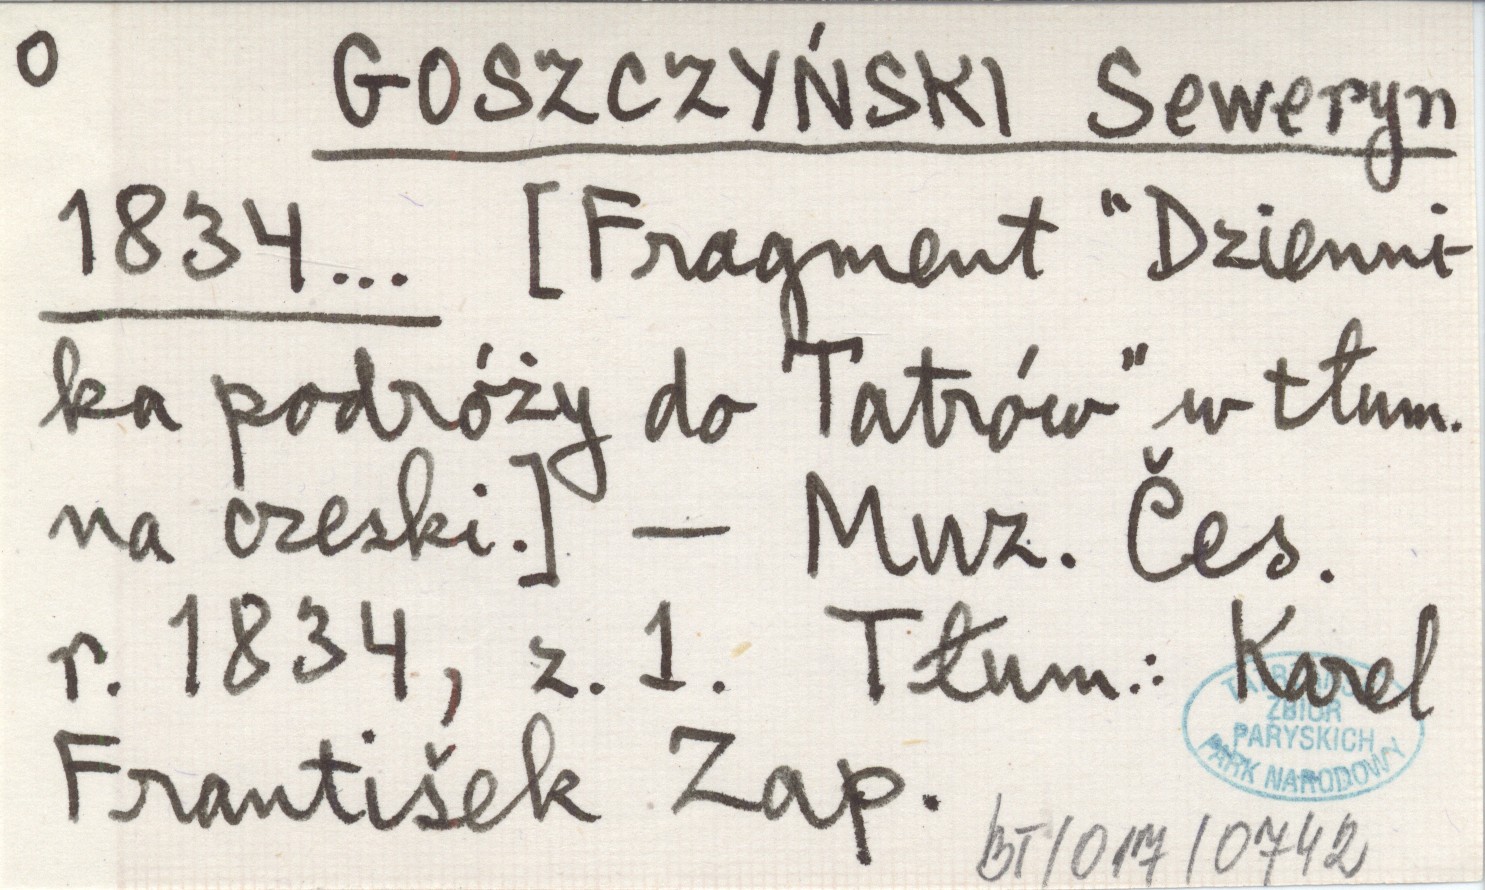 O GOSZCZYŃSKI Seweryn
1834... [Fragment "Dzienni-
ka podróży do Tatrów" w tłum.
na czeski.] — Muz. Čes.
r. 1834, z. 1. Tłum.: Karel
František Zap.
TATRZAŃSKI
ZBIÓR
PARYSKICH
PARK NARODOWY
BT/017/0742